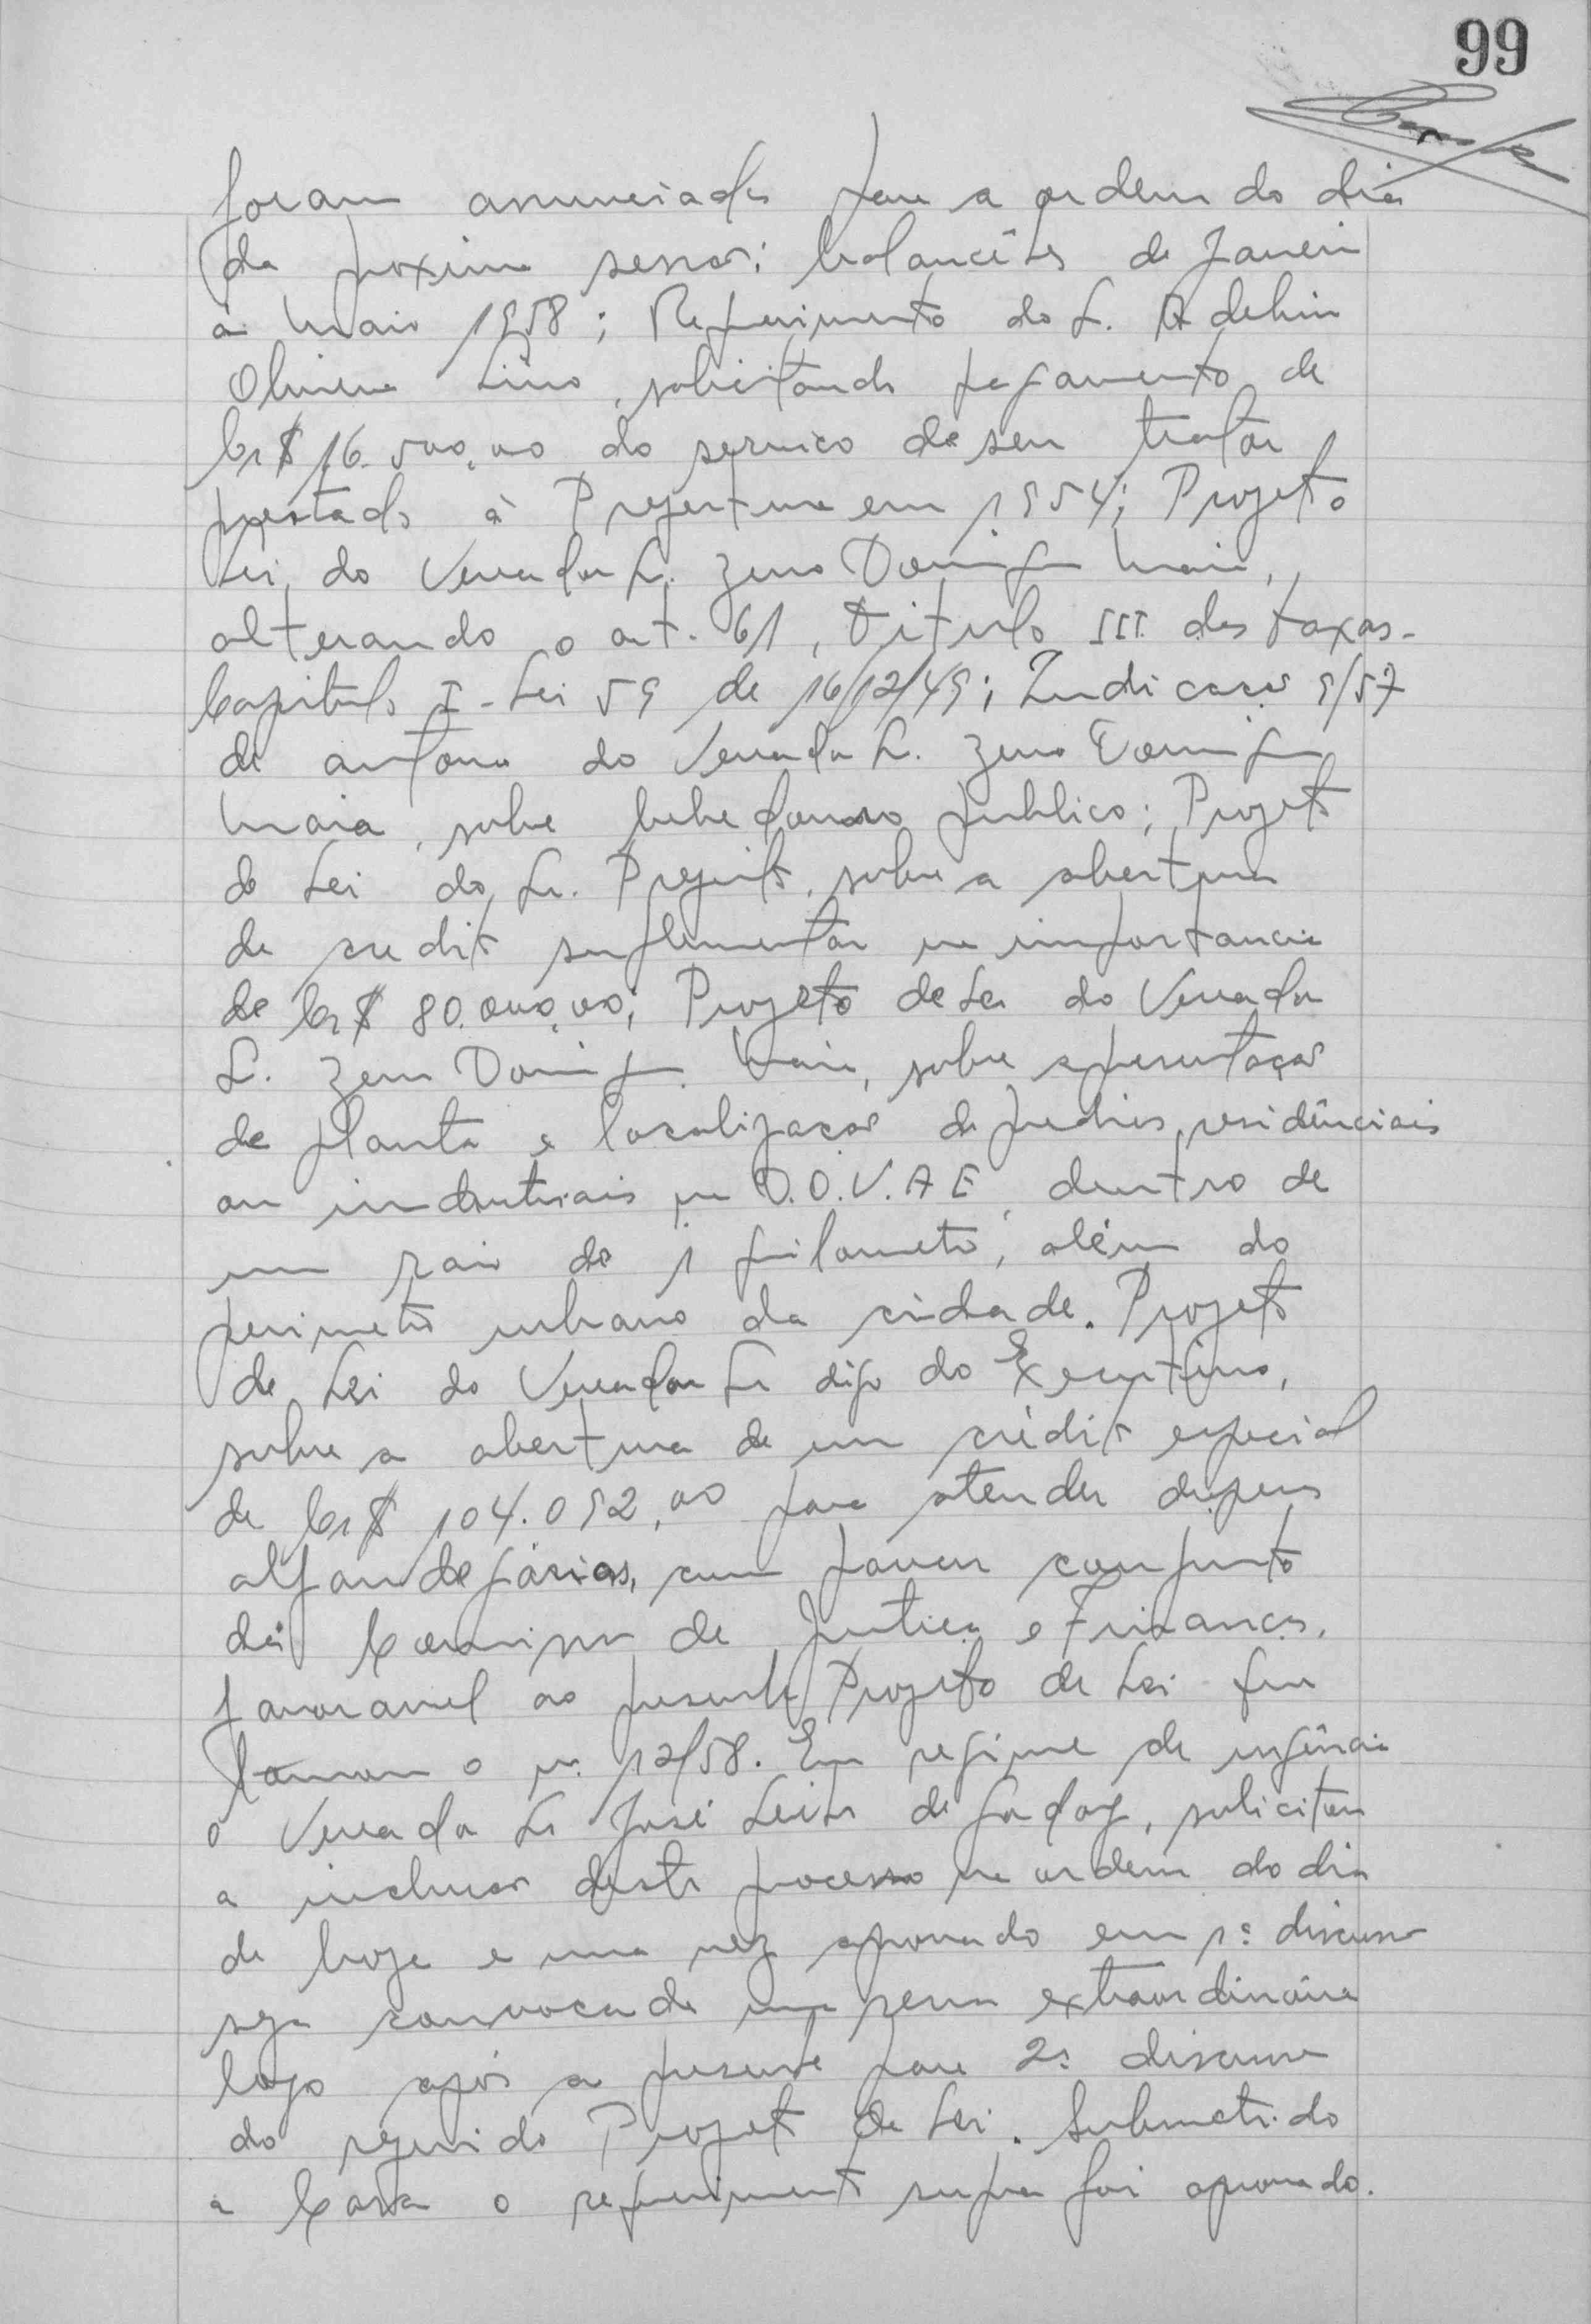 99
foram anunciados para a ordem do dia
da proxima sessão: balancêtes de Janeiro
á Maio 1958; Requerimento do Sr. Adelino
Oliveira Lino, solicitando pagamento de
Cr$ 16.500,00 do serviço de seu trator
prestado à Prefeitura em 1954; Projeto
Lei do Vereador Sr. Zeno Domingos Maia,
alterando o art. 61, Titulo III das taxas-
Capitulo I - Lei 59 de 16/12/49; Indicação 9/57
de autoria do Vereador Sr. Zeno Domingos
Maia, sobre bebedouro publico; Projeto
de Lei do Sr. Prefeito, sobre a abertura
de credito suplementar na importancia
de Cr$ 80.000,00; Projeto de Lei do Vereador
Sr. Zeno Domingos Maia, sobre apresentação
de planta e localização de predios residênciais
ou industriais na D.O.V.A E, dentro de
um raio de 1 quilometro, além do
perimetro urbano da cidade. Projeto
de Lei do Vereador Sr digo do Executivo,
sobre a abertura de um crédito especial
de Cr$ 104.092,00 para atender despesas
alfandegárias, com parecer conjunto
das Comissões de Justiça e Finanças,
favoravel ao presente Projeto de Lei que
tomou o n. 12/58. Em regime de urgência
o Vereador Sr José Leite de Godoy, solicitou
a inclusão deste processo na ordem do dia
de hoje e uma vez aprovado em 1ª discussão
seja convocada uma sessão extraordinária
logo após a presente para 2ª discussão
do referido Projeto de Lei. Submetido
a Casa o requerimento supra foi aprovado.